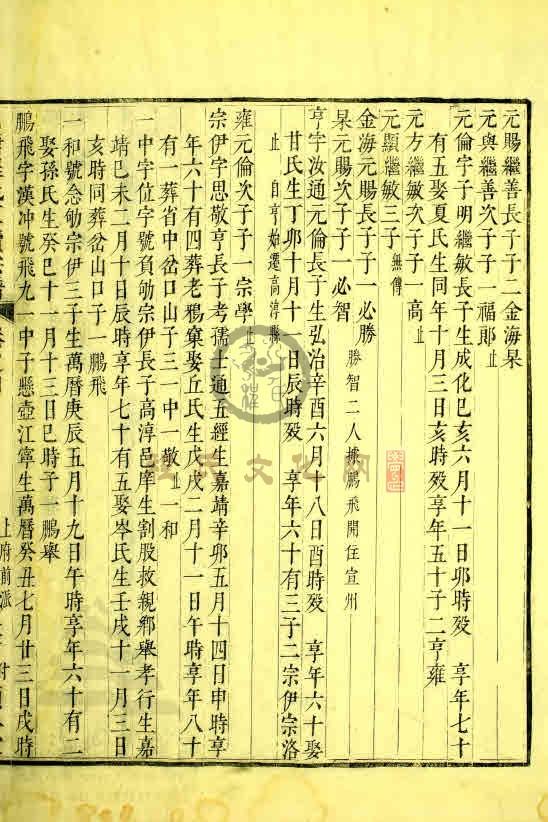 元賜繼善長子子二金海杲
元與繼善次子子一福郎止
元倫字子明繼敏長子生成化巳亥六月十一日卯時歿 享年七十
有五娶夏氏生同年十月三日亥時歿享年五十子二亨雍
元方繼敏次子子一高止
元顯繼敏三子無傳
金海元賜長子子一必勝 勝智二人據鵬飛開住宣州
杲元賜次子子一必智
亨字汝通元倫長子生弘治辛酉六月十八日酉時歿 享年六十娶
甘氏生丁卯十月十一日辰時歿 享年六十有三子二宗伊宗洛
止 自亨始遷高淳縣
雍元倫次子子一宗學止
宗伊字思敬亨長子考孺士通五經生嘉靖辛卯五月十四日申時享
年六十有四葬老鴉窠娶丘氏生戊戌二月十一日午時享年八十
有一葬省中岔口山子三一中一敬止一和
一中字位字號負劬宗伊長子高淳邑庠生割股救親鄉舉孝行生嘉
靖巳未二月十日辰時享年七十有五娶岑氏生壬戌十一月三日
亥時同葬岔山口子一鵬飛
一和號念劬宗伊三子生萬曆庚辰五月十九日午時享年六十有二
娶孫氏生癸巳十一月十三日巳時子一鵬舉
鵬飛字漢冲號飛九一中子懸壺江寧生萬曆癸丑七月廿三日戌時
止府前派
祖宗文化网